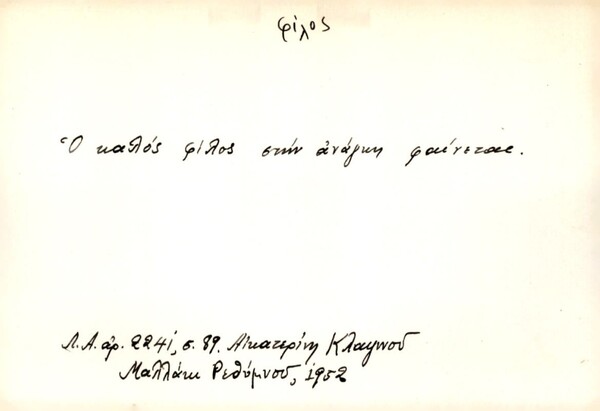 φίλος
Ὁ καλός φίλος στήν ἀνάγκη φαίνεται.
Λ.Α. ἀρ. 2241, σ. 89. Αἰκατερίνη
Ρεθύμνου, 1952